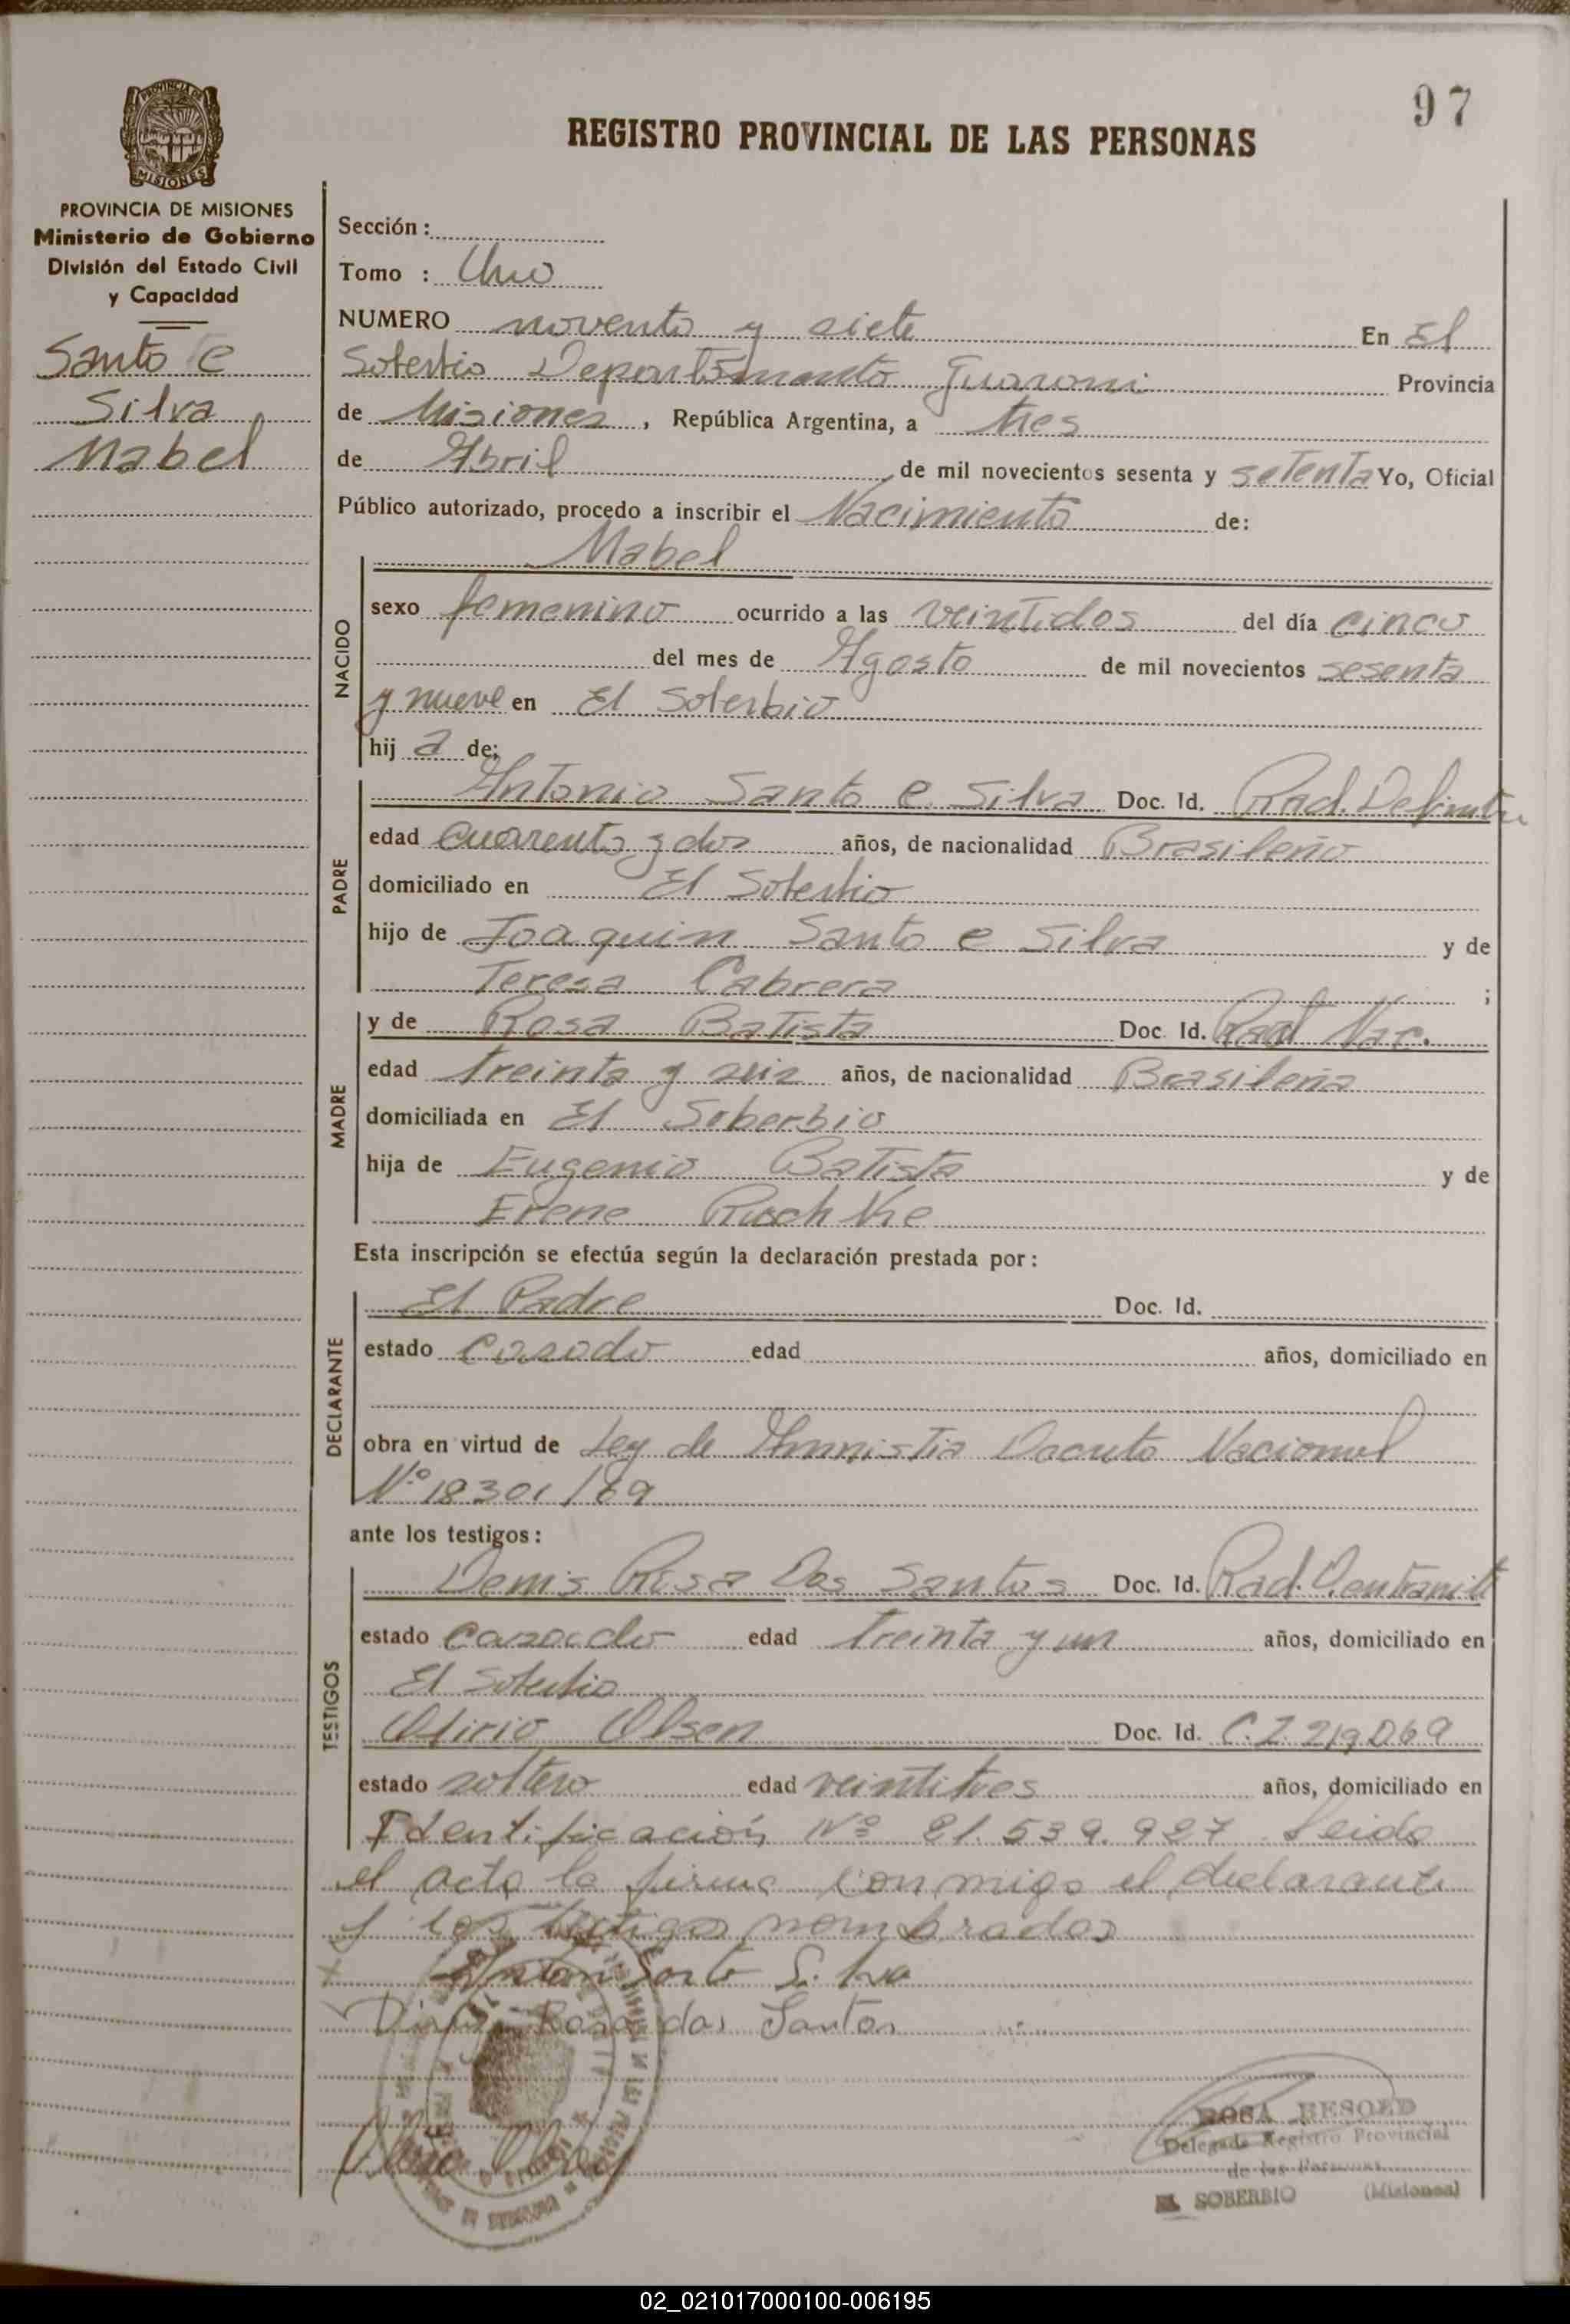 97
REGISTRO PROVINCIAL DE LAS PERSONAS
PROVINCIA DE MISIONES
Ministerio de Gobierno
División del Estado Civil
y Capacidad
Santo e
Silva
Mabel
Sección :
Tomo : Uno
NUMERO noventa y siete En El
Soberbio Departamento Guarani Provincia
de Misiones, República Argentina, a tres
de Abril de mil novecientos sesenta y setenta Yo, Oficial
Público autorizado, procedo a inscribir el Nacimiento de:
Mabel
NACIDO
sexo femenino ocurrido a las veintidos del día cinco
del mes de Agosto de mil novecientos sesenta
y nueve en El Soberbio
hij a de:
PADRE
Antonio Santo e Silva Doc. Id. Rad. Definitu
edad cuarenta y dos años, de nacionalidad Brasileño
domiciliado en El Soberbio
hijo de Joaquin Santo e Silva y de
Teresa Cabrera ;
MADRE
y de Rosa Batista Doc. Id. Nac.
edad treinta y seis años, de nacionalidad Brasileña
domiciliada en El Soberbio
hija de Eugenio Batista y de
Erene
Esta inscripción se efectúa según la declaración prestada por :
DECLARANTE
El Padre Doc. Id.
estado Casado edad años, domiciliado en
obra en virtud de Ley de Amnistia Decreto Nacional
Nº 18301/69
ante los testigos :
TESTIGOS
Denis Rosa Dos Santos Doc. Id. Rad.
estado casado edad treinta y un años, domiciliado en
El Soberbio
Olirio Olsen Doc. Id. C.I. 219069
estado soltero edad veintitres años, domiciliado en
Identificación Nº 21.539.927 Leida
el acta la firma conmigo el declarante
y los testigos nombrados
Santo Silva
Rosa dos Santos
ROSA BESOLD
Delegada Registro Provincial
de las Personas
EL SOBERBIO (Misiones)
02_021017000100-006195